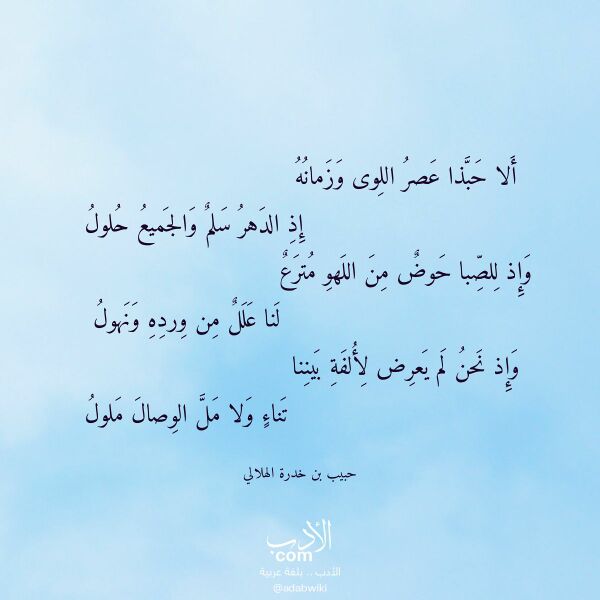 أَلا حَبَّذا عَصرُ اللِوى وَزَمانُهُ
إِذِ الدَهرُ سَلمٌ وَالجَميعُ حُلولُ
وَإِذ لِلصِّبا حَوضٌ مِنَ اللَهوِ مُترَعٌ
لَنا عَلَلٌ مِن وِردِهِ وَنَهولُ
وَإِذ نَحنُ لَم يَعرِض لِأُلفَةِ بَينِنا
تَناءٍ وَلا مَلَّ الوِصالَ مَلولُ
حبيب بن خدرة الهلالي
الأدب
com
الأدب .. بلغة عربية
@adabwiki